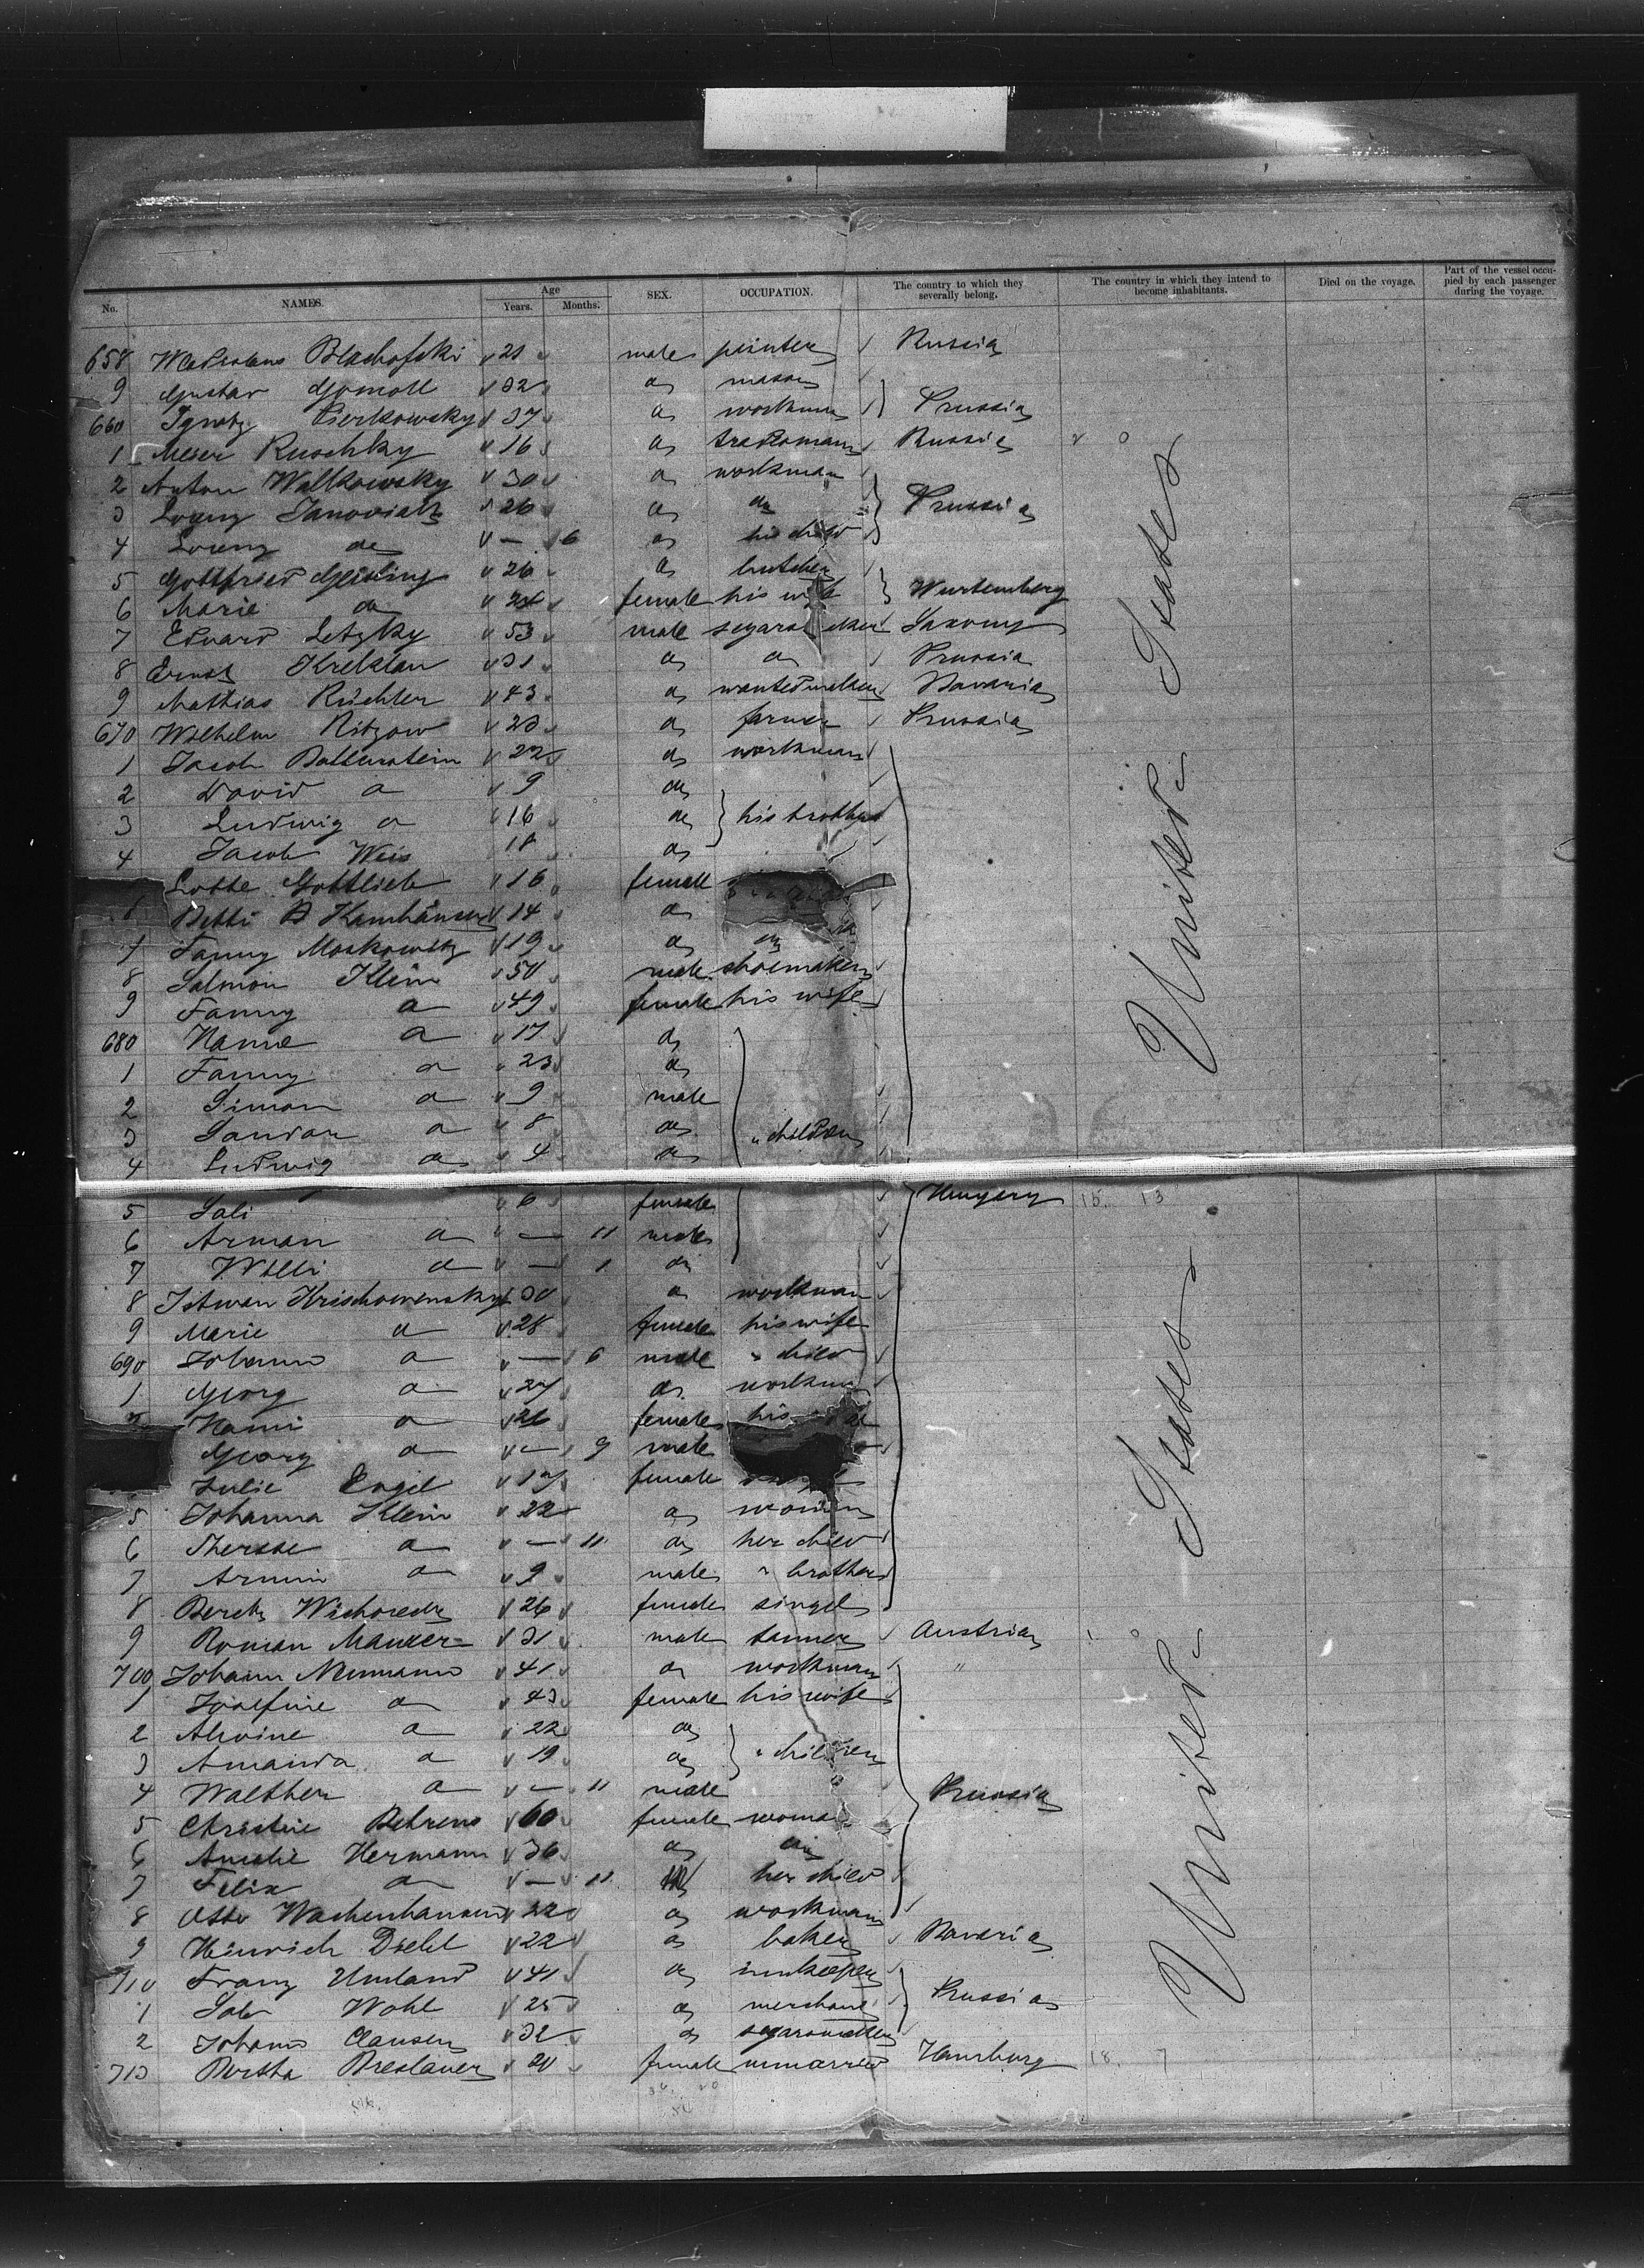 No. NAMES. Age Years. Months. SEX. OCCUPATION. The country to which they severally belong. The country in which they intend to become inhabitants. Died on the voyage. Part of the vessel occupied by each passenger during the voyage.
658 Blachofski 21 male painter Russia
9 Gustav Gomoll 32 do mason
660 Ignatz 37 do workman Prussia
1 Meier Ruschky 16 do tradesman Russia
2 Anton Walkowsky 30 do workman
3 Lorenz Janoviak 26 do do Prussia
4 Lorenz do — 6 do his child
5 Gottfried 26 do butcher
6 Marie do 24 female his wife Wurtemberg
7 Eduard Letzky 53 male Saxony
8 Ernst Krelklau 31 do do Prussia
9 Mathias Richter 43 do Bavaria
670 Wilhelm Ritzow 23 do farmer Prussia
1 Jacob 22 do workman
2 David do 9 do
3 Ludwig do 16 do his brothers
4 Jacob Weis 18 do
Lotte Gottlieb 16 female
Betti 14 do
7 Fanny Moskowitz 19 do do
8 Salmon Klein 50 male shoemaker
9 Fanny do 49 female his wife
680 Hanne do 17 do
1 Fanny do 23 do
2 Simon do 9 male
3 Sandor do 8 do " children
4 Ludwig do 4 do
5 Sali 6 female Hungary 15 13
6 Arman do — 11 male
7 Willi do — 1 do
8 Istwan 30 do workman
9 Marie do 28 female his wife
690 Johann do — 6 male " child
1 Georg do 27 do workman
Hanni do 26 female his
Georg do — 9 male
Julie Engel 17 female
5 Johanna Klein 22 do woman
6 Therese do — 11 do her child
7 Armin do 9 male " brother
8 26 female singel
9 Roman 31 male tanner Austria
700 Johann Neumann 41 do workman "
1 Josefine do 43 female his wife
2 Alwine do 22 do
3 Amanda do 19 do " children
4 Walther do — 11 male Prussia
5 Christine Behrens 60 female woman
6 Amalie Hermann 36 do do
7 Felix do — 11 her child
8 Otto Wachenhausen 22 do workman
9 Heinrich Diehl 22 do baker Bavaria
710 Franz Umland 41 do innkeeper
1 Wohl 25 do merchant Prussia
2 Johann Clausen 32 do segarmaker
713 Bertha Breslauer 20 female unmarried Hamburg 18 7
United States
United States